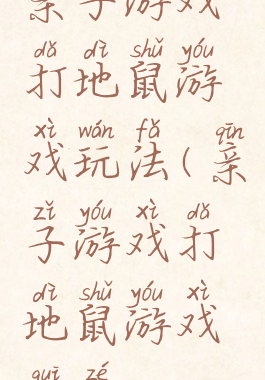 亲子游戏
dǎ dì shǔ yóu
打地鼠游
xì wán fǎ qīn
戏玩法(亲
zǐ yóu xì dǎ
子游戏打
dì shǔ yóu xì
地鼠游戏
guī zé